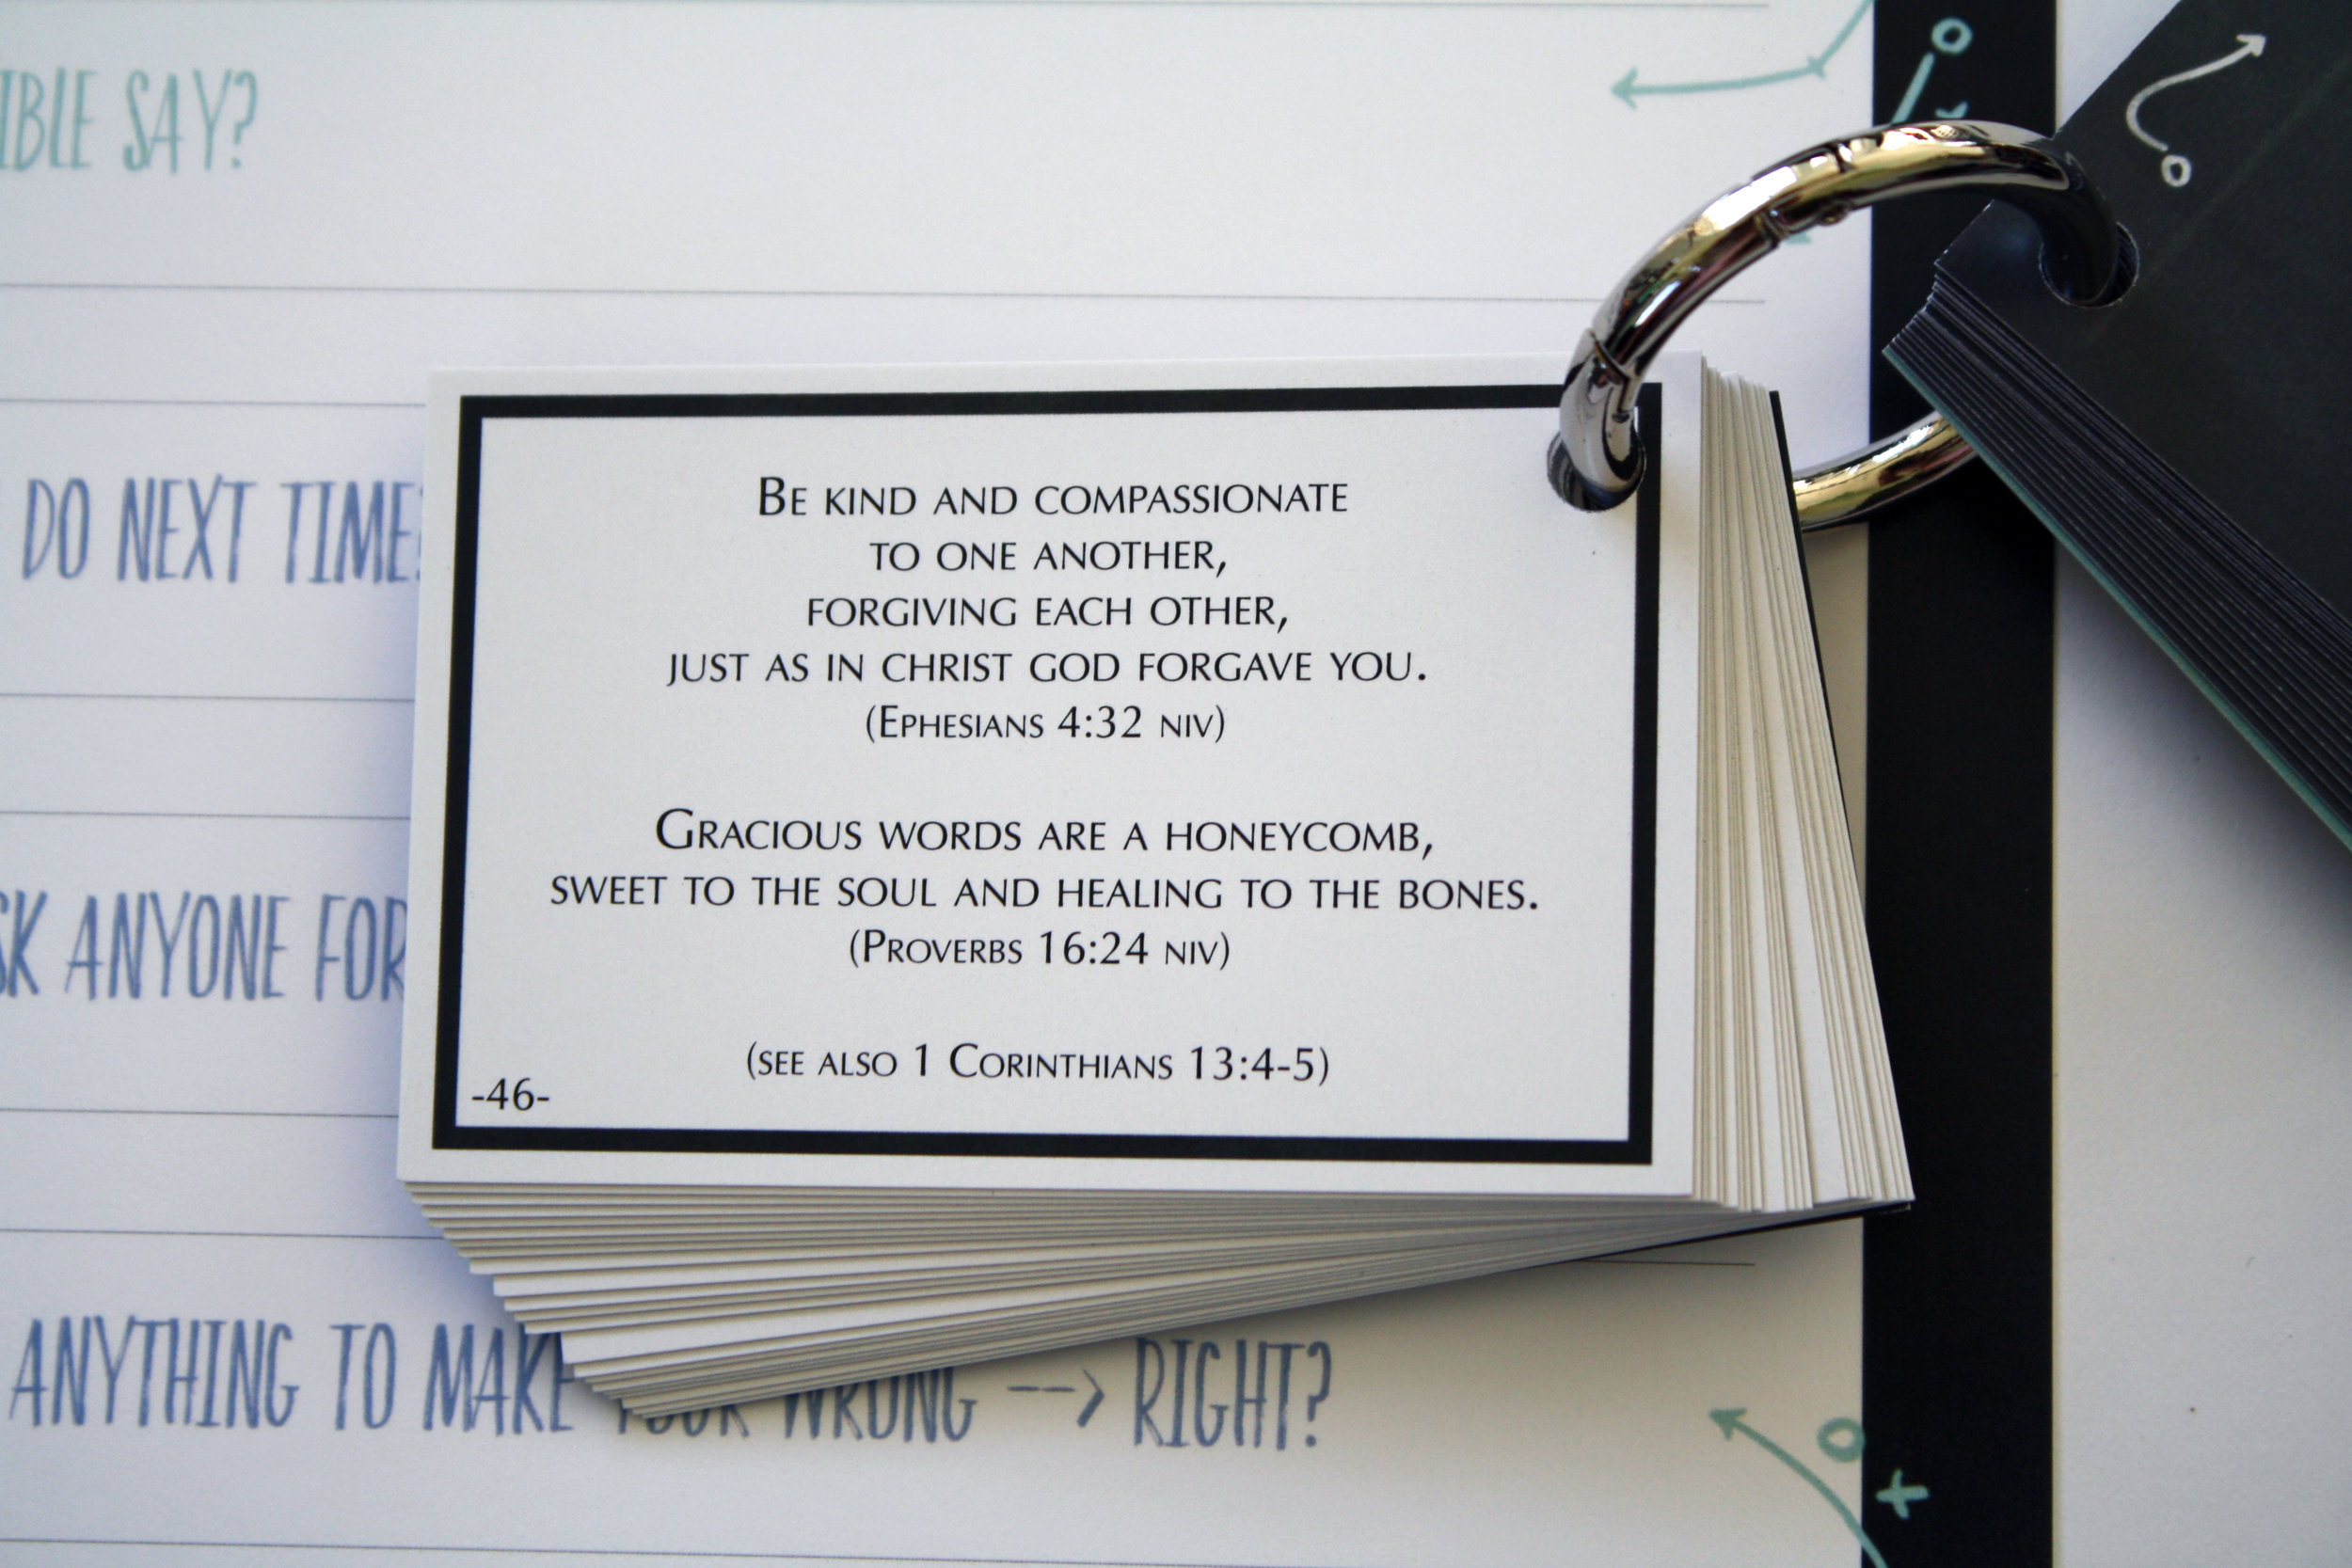 IBLE SAY?
DO NEXT TIME?
SK ANYONE FOR
ANYTHING TO MAKE YOUR WRONG --> RIGHT?
Be kind and compassionate
to one another,
forgiving each other,
just as in Christ God forgave you.
(Ephesians 4:32 NIV)
Gracious words are a honeycomb,
sweet to the soul and healing to the bones.
(Proverbs 16:24 NIV)
(see also 1 Corinthians 13:4-5)
-46-